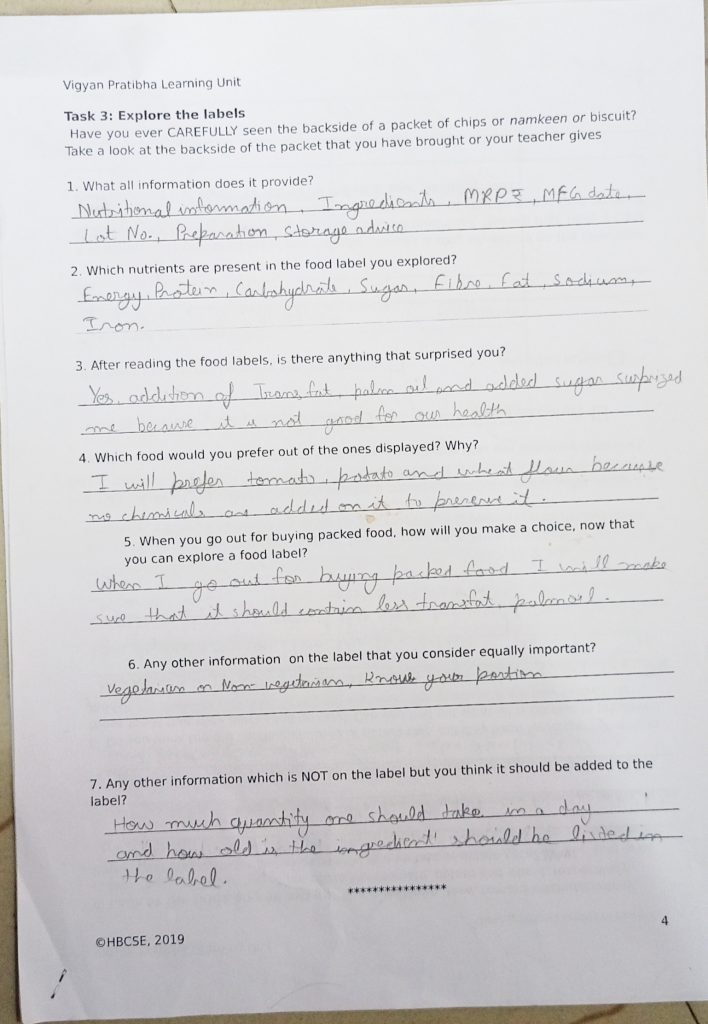 Vigyan Pratibha Learning Unit
Task 3: Explore the labels
Have you ever CAREFULLY seen the backside of a packet of chips or namkeen or biscuit?
Take a look at the backside of the packet that you have brought or your teacher gives
1. What all information does it provide?
Nutritional information, Ingredients, MRP ₹, MFG date,
Lot No., Preparation, storage advice
2. Which nutrients are present in the food label you explored?
Energy, Protein, Carbohydrate, Sugar, Fibre, Fat, Sodium,
Iron.
3. After reading the food labels, is there anything that surprised you?
Yes, addition of Trans fat, palm oil and added sugar surprized
me because it is not good for our health
4. Which food would you prefer out of the ones displayed? Why?
I will prefer tomato, potato and wheat flour because
no chemicals are added on it to preserve it.
5. When you go out for buying packed food, how will you make a choice, now that
you can explore a food label?
When I go out for buying packed food I will make
sure that it should contain less transfat, palmoil.
6. Any other information on the label that you consider equally important?
Vegetarian or Non-vegetarian, Know your portion
7. Any other information which is NOT on the label but you think it should be added to the
label?
How much quantity one should take in a day
and how old is the ingredient' should be listed in
the label.
****************
4
©HBCSE, 2019